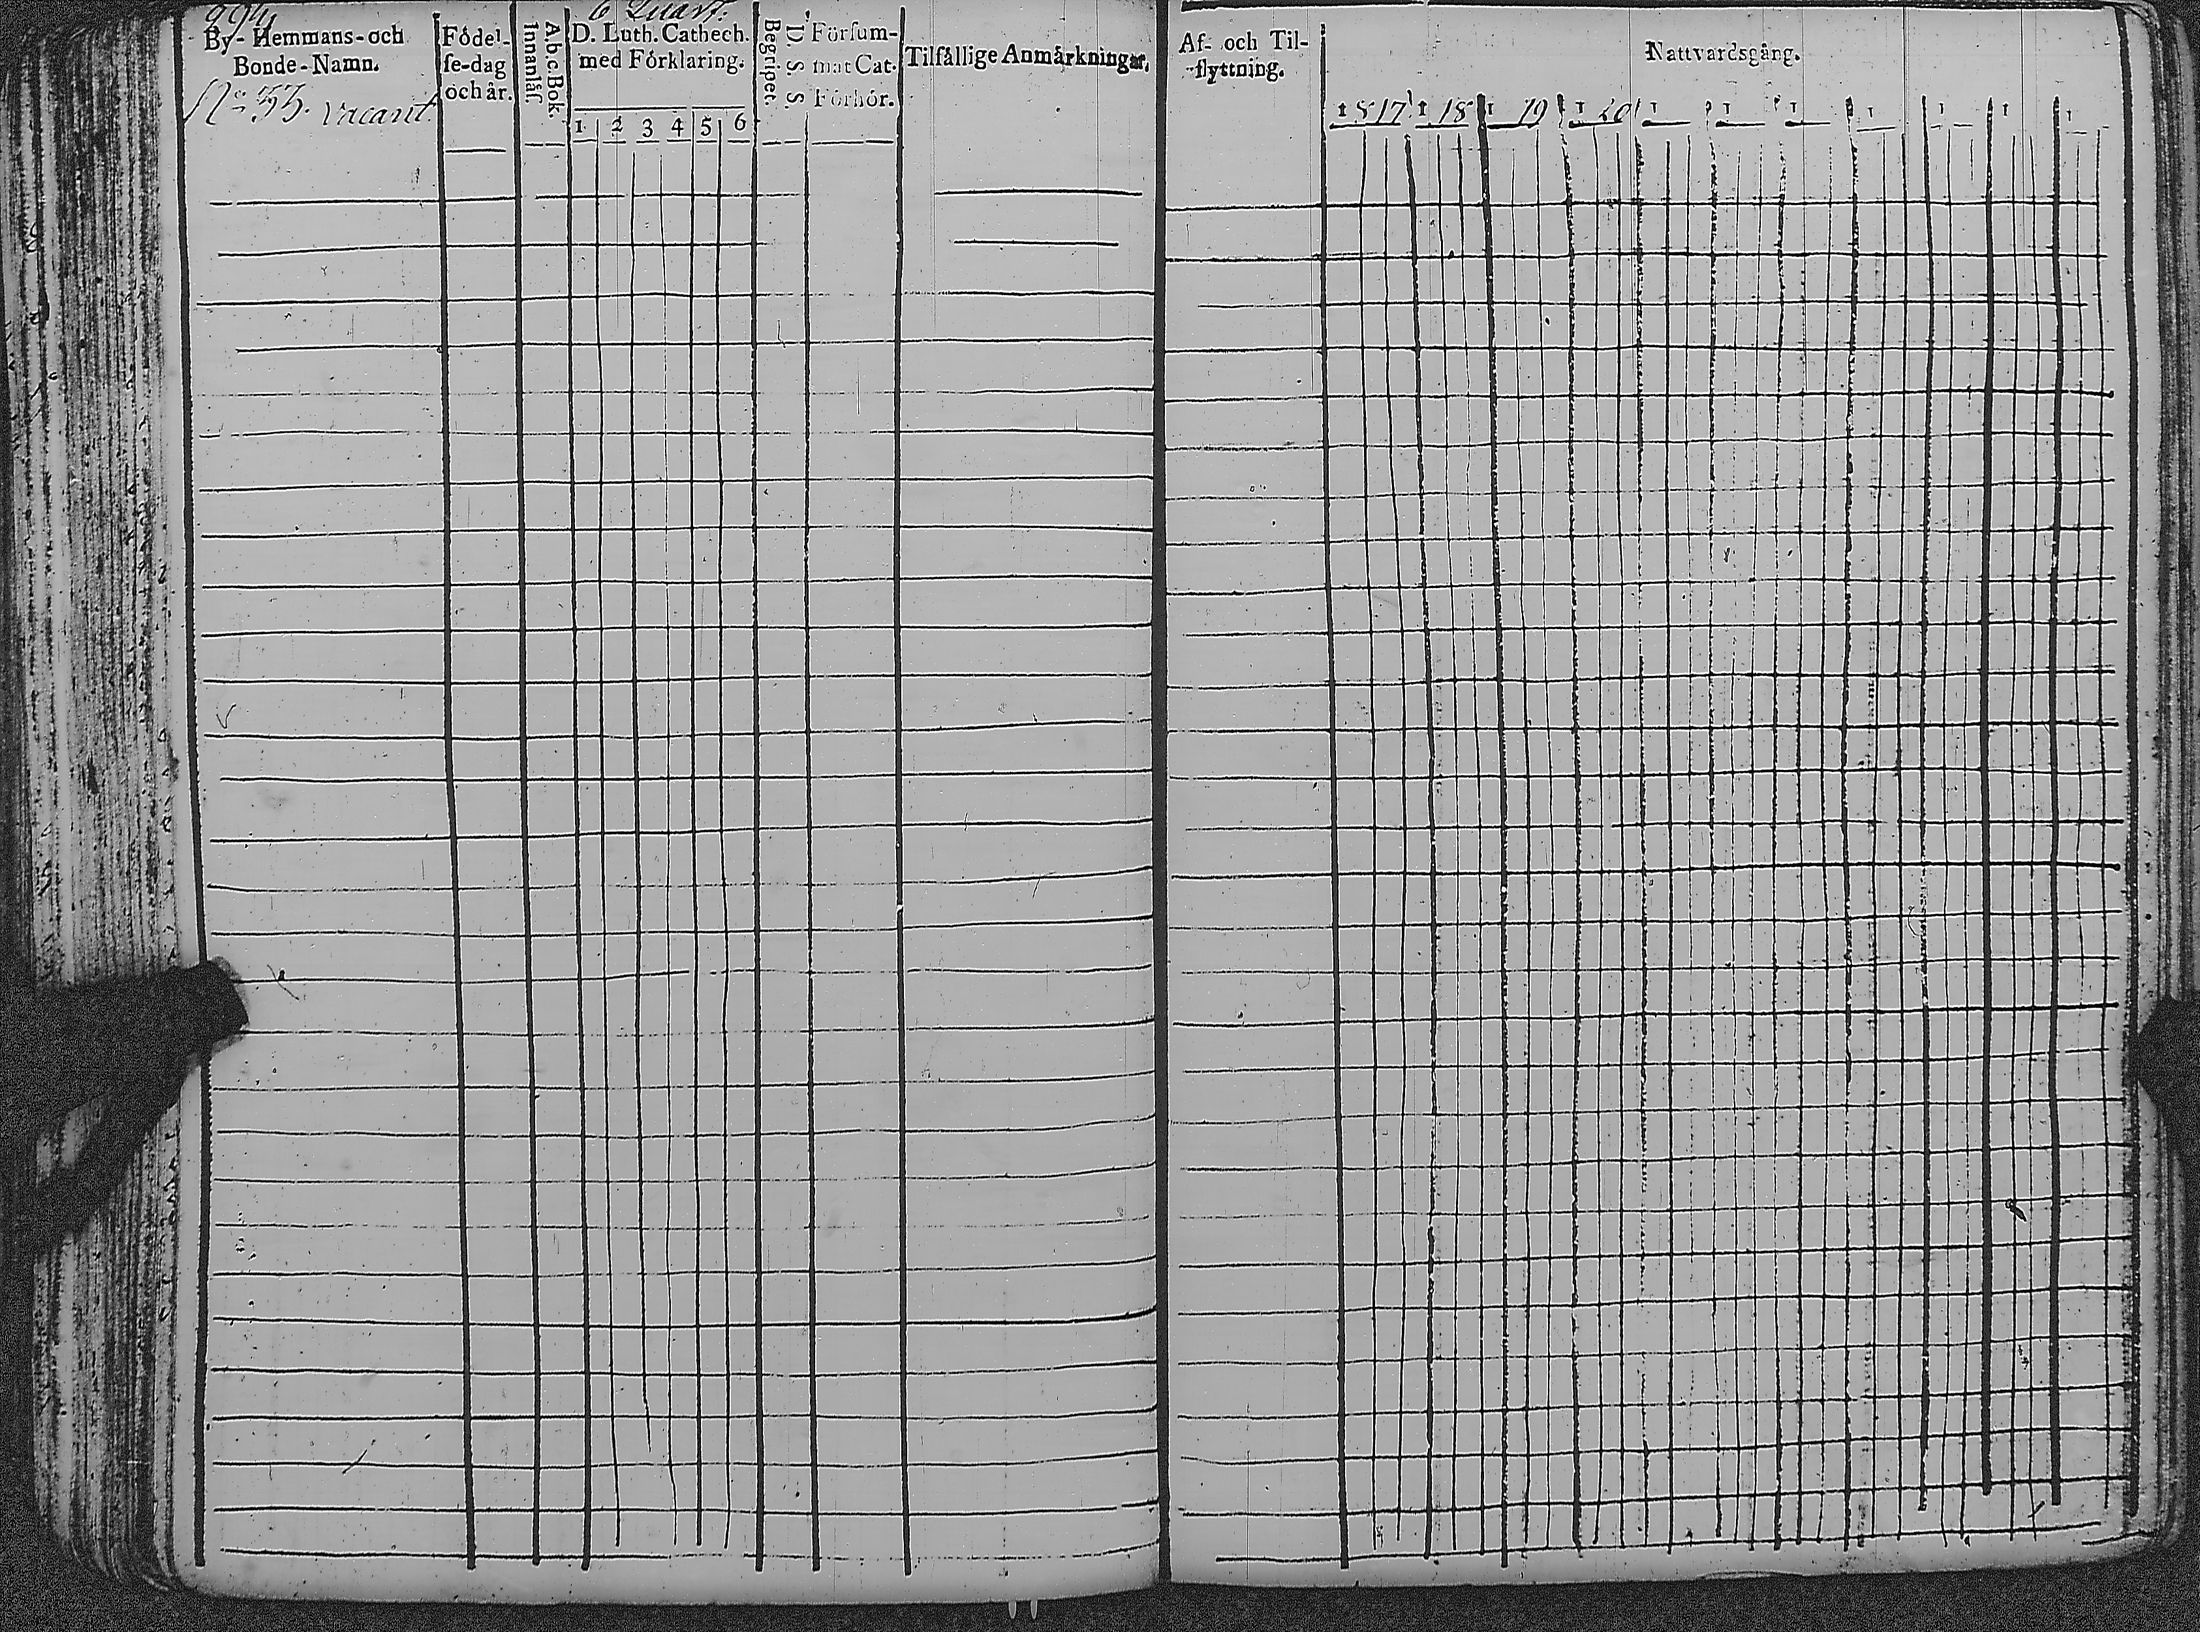 994
6 Quart:
By- Hemmans- och
Bonde-Namn.
Födel-
se-dag
och år.
A.b.c. Bok.
Innanläs.
D. Luth. Cathech.
med Förklaring.
1 2 3 4 5 6
Begriper.
D. S. S.
Försum-
mat Cat.
Förhör.
Tilfällige Anmärkningar.
No 53. vacant
Af- och Til-
flyttning.
Nattvardsgång.
1817 1 18 1 19 1 20 1 1 1 1 1 1 1